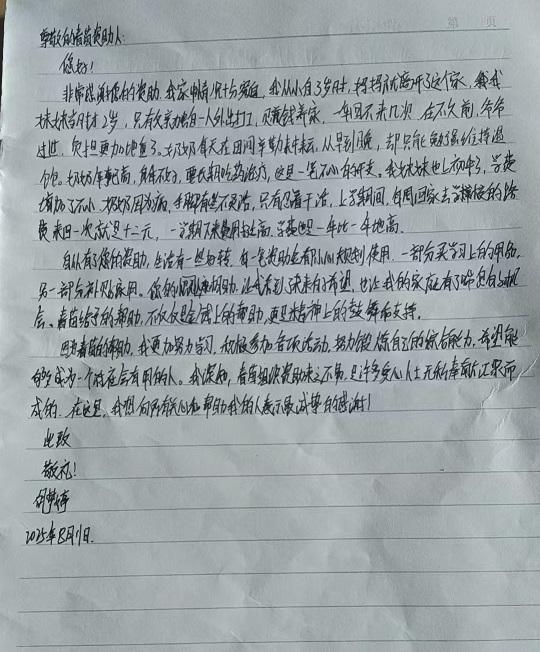 第 页
尊敬的春苗资助人:
您好!
非常感谢您的资助,我家中情况十分窘迫,我从小自3岁时,妈妈就离开了这个家,我
妹妹当时才2岁,只有父亲独自一人外出打工,负责赚钱养家,一年回不来几次,在不久前,爷爷
过世,负担更加地重了,奶奶每天在田间辛勤耕耘,从早到晚,却只能勉强维持温
饱,奶奶年事已高,身体不好,要长期吃药治疗,这是一笔不小的开支,我妹妹也上初中了,学费
增加了不小,奶奶因为病,手脚有些不灵活,只有忍着干活,上学期间,每周回家去学校的路
费来回一次就是十二元,一学期下来费用挺高,学费也是一年比一年地高。
自从有了您的资助,生活有一些好转,每一笔资助金都小心规划使用,一部分买学习上的用品,
另一部分补贴家用。您的帮助,让我看到未来的希望,也让我的家庭有了喘息的机
会,春苗给予的帮助,不仅仅是金钱上的帮助,更是精神上的鼓舞和支持。
因为春苗的帮助,我更加努力学习,积极参加各项活动,努力锻炼自己的综合能力,希望能
够成为一个对社会有用的人。我深知,春苗组织资助来之不易,是许多爱心人士无私奉献汇聚而
成的,在这里,我想向所有关心和帮助我的人表示最诚挚的感谢!
此致
敬礼!
2025年8月1日.